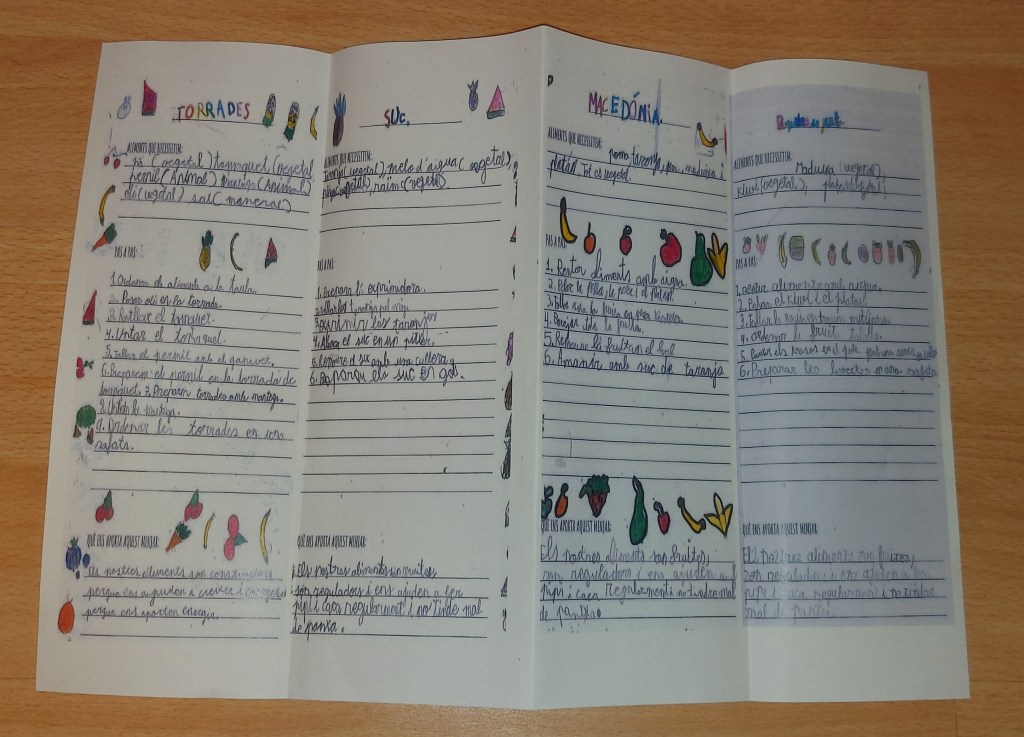 TORRADES
ALIMENTS QUE NECESSITEM:
pà (vegetal) tomaquet (vegetal)
pernil (Animal) mantega (Animal)
oli (vegetal) sal (maneral)
PAS A PAS:
1. Ordenar els aliments a la taula.
2. Posar oli en la torrada.
3. Ratllar el tomaquet.
4. Untar el tomaquet.
5. Tallar el pernil amb el ganivet.
6. Preparem el pernil en la torrada de
tomaquet. 7. Preparem torrades amb mantega.
8. Untar la mantega.
9. Ordenar les torrades en una
safata.
QUÈ ENS APORTA AQUEST MENJAR:
Els nostres aliments son constructors
perque ens ajuden a creixer i
perque ens aporten energia.
SUC.
ALIMENTS QUE NECESSITEM:
taronja (vegetal), melo d'aigua (vegetal),
pinya (vegetal), raim (vegetal).
PAS A PAS:
1. Preparar l'exprimidora.
2. Tallar les taronjes pel mig.
3. Exprimir les taronjes
4. Aboca el suc en un
5. Remoure el suc amb una cullera
6. els suc en gots.
QUÈ ENS APORTA AQUEST MENJAR:
Els nostres aliments son fruites,
son reguladors i ens ajuden a fer
pipi i caca regularment i no tindre mal
de panxa.
MACEDÓNIA.
ALIMENTS QUE NECESSITEM:
poma, taronja, pera, maduixa i
platan. Tot es vegetal.
PAS A PAS:
1. Rentar aliments amb aigua.
2. Pelar la pera, la poma i el platan.
3. Tallar tota la fruita en
4. Barrejar tota la fruita.
5. Remoure la fruita en el bol
6. Amanir amb suc de taronja
QUÈ ENS APORTA AQUEST MENJAR:
Els nostres aliments son fruites,
son reguladors i ens ajuden a fer
pipi i caca regularment i no tindre mal
de panxa.
ALIMENTS QUE NECESSITEM:
Maduixa (vegetal),
kiwi (vegetal), platan (vegetal)
PAS A PAS:
1. Rentar aliments amb aigua.
2. Pelar el kiwi i el platan.
3. Tallar la
4. Ordenar la fruita tallada.
5. Posar els trossos en el
6. Preparar les brochetes en una safata
QUÈ ENS APORTA AQUEST MENJAR:
Els nostres aliments son fruites,
son reguladors i ens ajuden a fer
pipi i caca regularment i no tindre
mal de panxa.